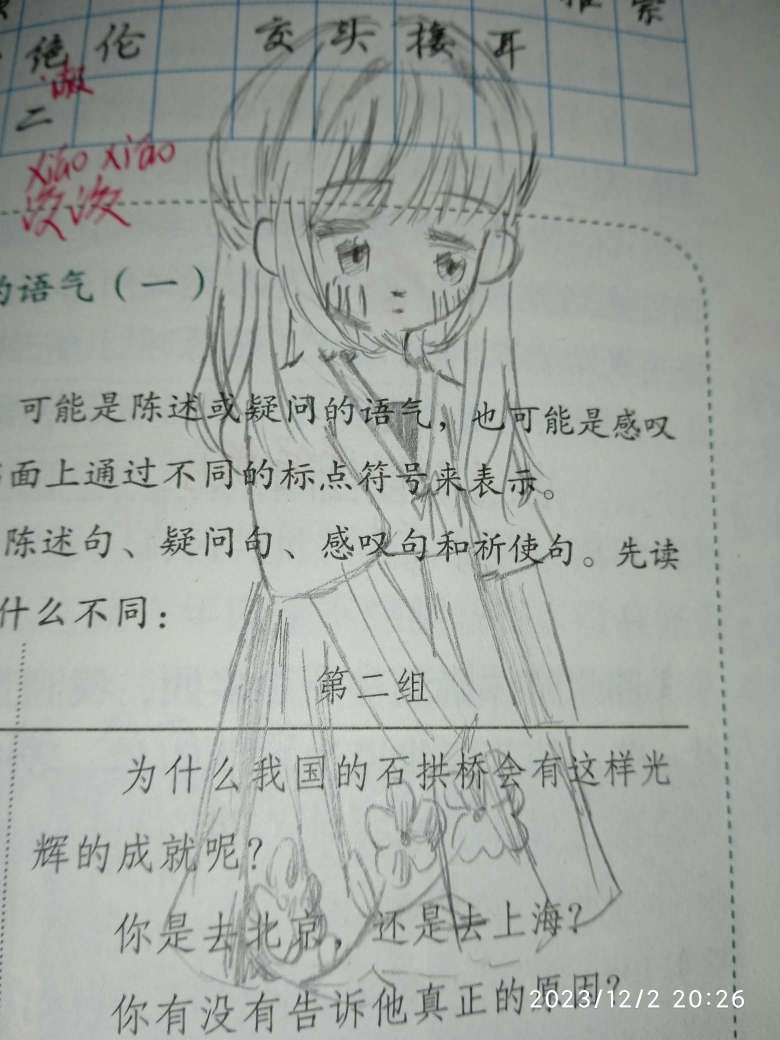 索
绝伦 交头接耳
二
xiāo xiāo
的语气（一）
可能是陈述或疑问的语气，也可能是感叹
面上通过不同的标点符号来表示。
陈述句、疑问句、感叹句和祈使句。先读
什么不同：
第二组
为什么我国的石拱桥会有这样光
辉的成就呢？
你是去北京，还是去上海？
你有没有告诉他真正的原因？
2023/12/2 20:26